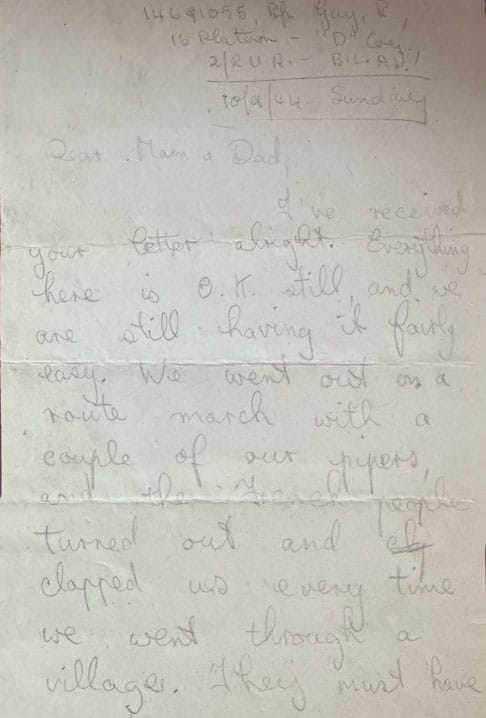 14691055, Rfn Guy, R,
16 Platoon - "D" Coy.
2/R.U.R. - B.L.A.
10/9/44 Sunday
Dear Mam & Dad,
I've received
your letter alright. Everything
here is O.K. still, and we
are still having it fairly
easy. We went out on a
route march with a
couple of our pipers,
and the French people
turned out and
clapped us every time
we went through a
village. They must have